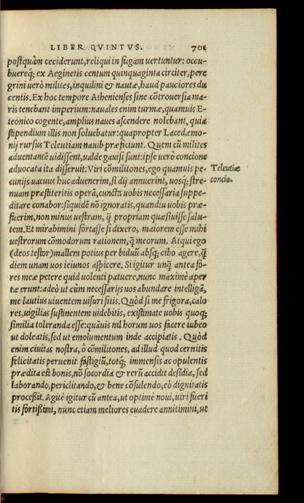 LIBER QVINTVS. 701
postquàm ceciderunt, reliqui in fugam uertuntur: occu-
buereq́; ex Aeginetis centum quinquaginta circiter, pere
grini uerò milites, inquilini & nautæ, haud pauciores du
centis. Ex hoc tempore Athenienses sine cõtrouersia ma-
ris tenebant imperium: nauales enim turmæ, quamuis E-
teonico cogente, amplius naues ascendere nolebant, quia
stipendium illis non soluebatur: quapropter Lacedæmo-
nij rursus Teleutiam nauib præficiunt. Quem cũ milites
aduentantẽ uidissent, ualde gauisi sunt: ipse uerò concione
aduocata ita disseruit: Veri cõmilitones, ego quamuis pe-
Teleutiæ
cunijs uacuus huc aduenerim, si dij annuerint, uosq́; stre-
concio.
nuam præstiteritis operã, cuncta uobis necessaria suppe-
ditare conabor: siquidẽ nõ ignoratis, quandiu uobis præ-
fuerim, non minus uestram, q̃ propriam quæsiuisse salu-
tem. Et mirabimini fortasse si dixero, maiorem esse mihi
uestrorum cõmodorum rationem, q̃ meorum. Atqui ego
(deos testor) mallem potius per biduũ absq́; cibo agere, q̃
diem unum uos ieiunos aspicere. Si igitur unq̃ antea fo-
res meæ petere quid uolenti patuere, nunc maximè aper
tæ erunt: adeò ut cùm necessarijs uos abundare intelligã,
me lautius uiuentem uisuri sitis. Quòd si me frigora, calo
res, uigilias sustinentem uidebitis, existimate uobis quoq;
similia toleranda esse: quãuis nil horum uos facere iubeo
ut doleatis, sed ut emolumentum inde accipiatis. Quòd
enim ciuitas nostra, ò cõmilitones, ad illud quod cernitis
felicitatis peruenit fastigiũ, totq́; immensis ac opulentis
prædita est bonis, nõ socordia & rerũ accidit desidia, sed
laborando, periclitando, & bene cõsulendo, eò dignitatis
processit. Agitè igitur cũ antea, ut optimè noui, uiri fueri
tis fortissimi, nunc etiam meliores euadere annitimini, ut